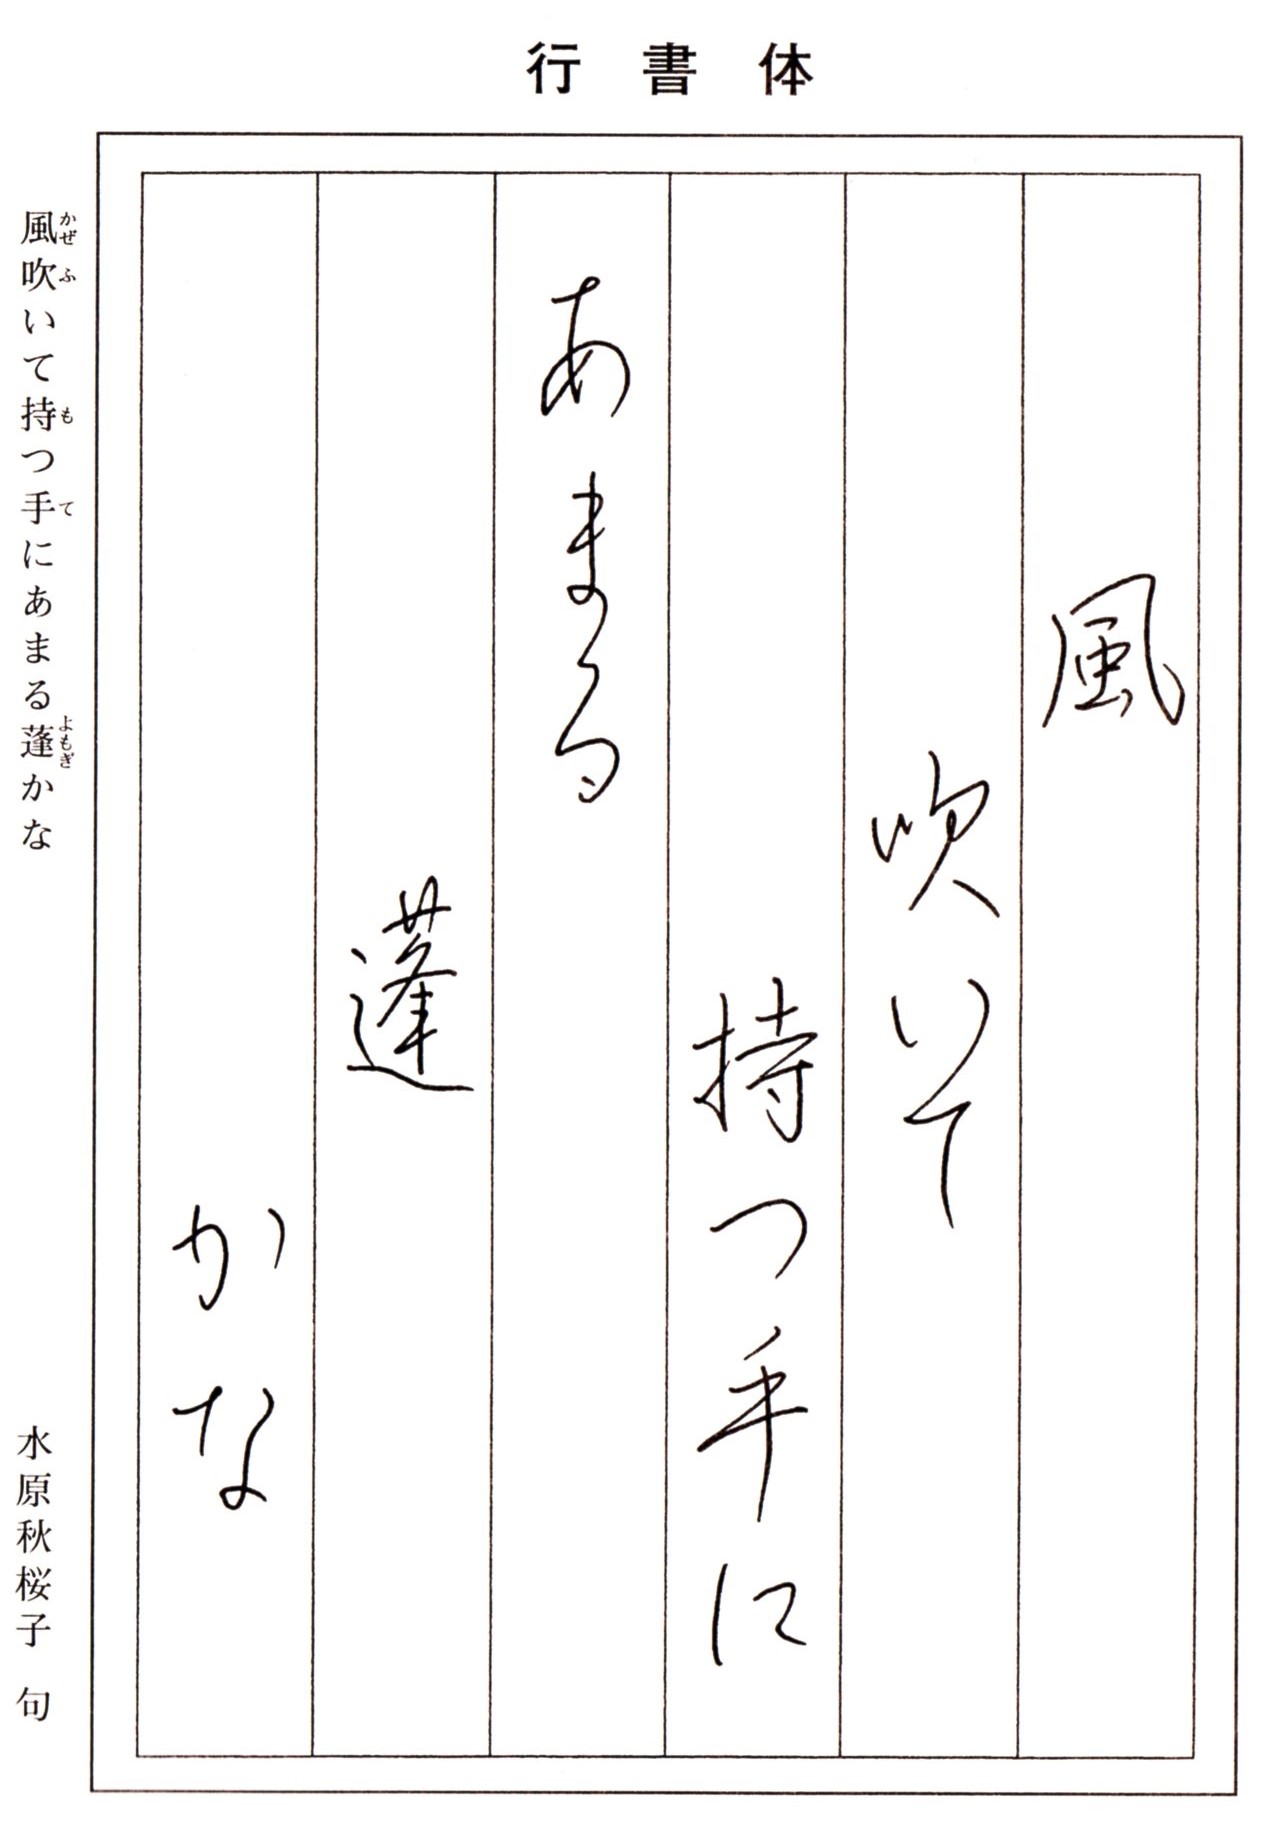 行書体
風
吹いて
持つ手に
あまる
蓬
かな
風吹いて持つ手にあまる蓬かな
かぜふ
も
て
よもぎ
水原秋桜子 句